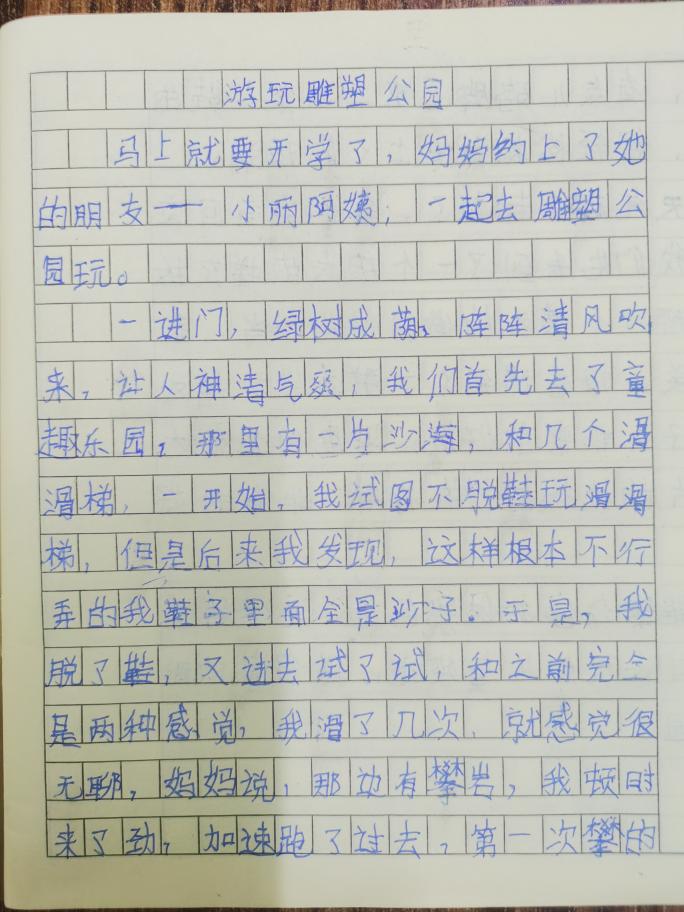 游玩雕塑公园
马上就要开学了，妈妈约上了她
的朋友——小丽阿姨，一起去雕塑公
园玩。
一进门，绿树成荫，阵阵清风吹
来，让人神清气爽，我们首先去了童
趣乐园，那里有一片沙海，和几个滑
滑梯，一开始，我试图不脱鞋玩滑滑
梯，但是后来我发现，这样根本不行
弄的我鞋子里面全是沙子．于是，我
脱了鞋，又过去试了试，和之前完全
是两种感觉，我滑了几次，就感觉很
无聊，妈妈说，那边有攀岩，我顿时
来了劲，加速跑了过去，第一次攀的